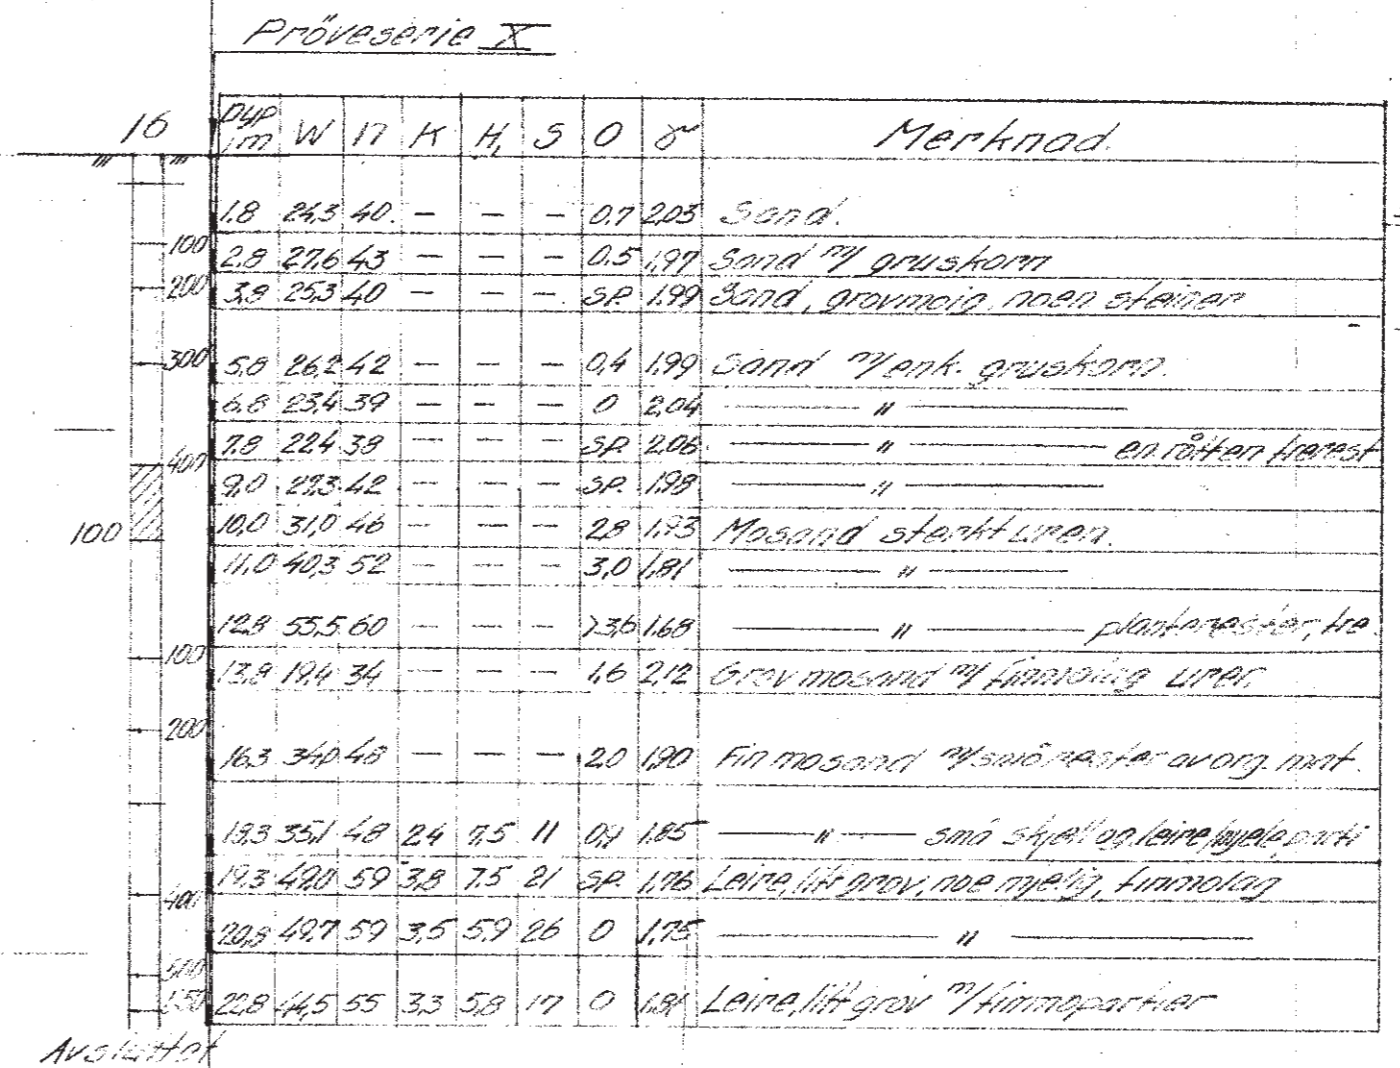 Pröveserie X
16
Dyp im W n K H₁ S O γ Merknad.
1.8 24,3 40. — — — 0,7 2,03 Sand.
100
2.8 27,6 43 — — — 0.5 1,97 Sand m/ gruskorn
200
3,8 25,3 40 — — — SP. 1.99 Sand, grovmoig, noen steiner
300
5,8 26,2 42 — — — 0,4 1,99 Sand m/enk. gruskorn.
6.8 23,4 39 — — — 0 2,04 — " —
7.8 22,4 38 — — — SP. 2,06 — " — en råtten trerest
400
9,0 27,3 42 — — — SP. 1,98 — " —
100
10,0 31,0 46 — — — 2,8 1,93 Mosand sterkt uren.
11.0 40,3 52 — — — 3,0 1,81 — " —
12.8 55,5 60 — — — >3,6 1.68 — " — planterester, tre.
100
13,8 19,4 34 — — — 1,6 2,12 Grov mosand m/ uren
200
16.3 34,0 48 — — — 2,0 1,90 Fin mosand m/små rester av org. mat.
18,3 35,1 48 2,4 7,5 11 1.85 — " — små skjell og leire, parti
19.3 49,0 59 3,8 7.5 21 SP. 1,76 Leire, litt grov, noe mjelig, finmolag
400
20,8 49,7 59 3,5 5,9 26 0 1,75 — " —
500
22,8 44,5 55 3,3 5,8 17 0 1,81 Leire, litt grov m/finmopartier
Avsluttet